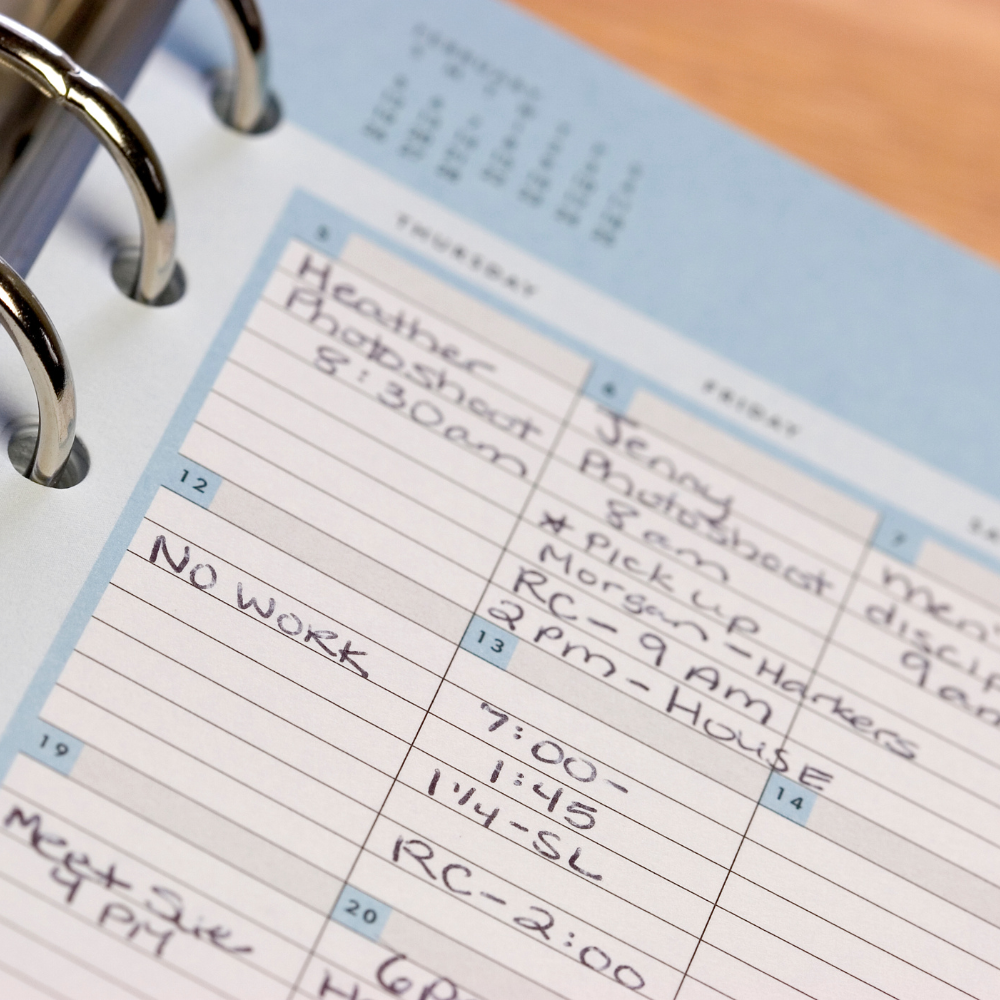 THURSDAY
5
Heather
Photoshoot
8:30am
FRIDAY
6
Jenny
Photoshoot
8am
* Pick up
Morgan - Harkers
RC - 9 Am
2 Pm - HousE
7
men's
discip
9 am
12
NO WORK
13
7:00-
1:45
1 1/4 - SL
RC - 2:00
14
19
Meet Sue
4 PM
20
6P